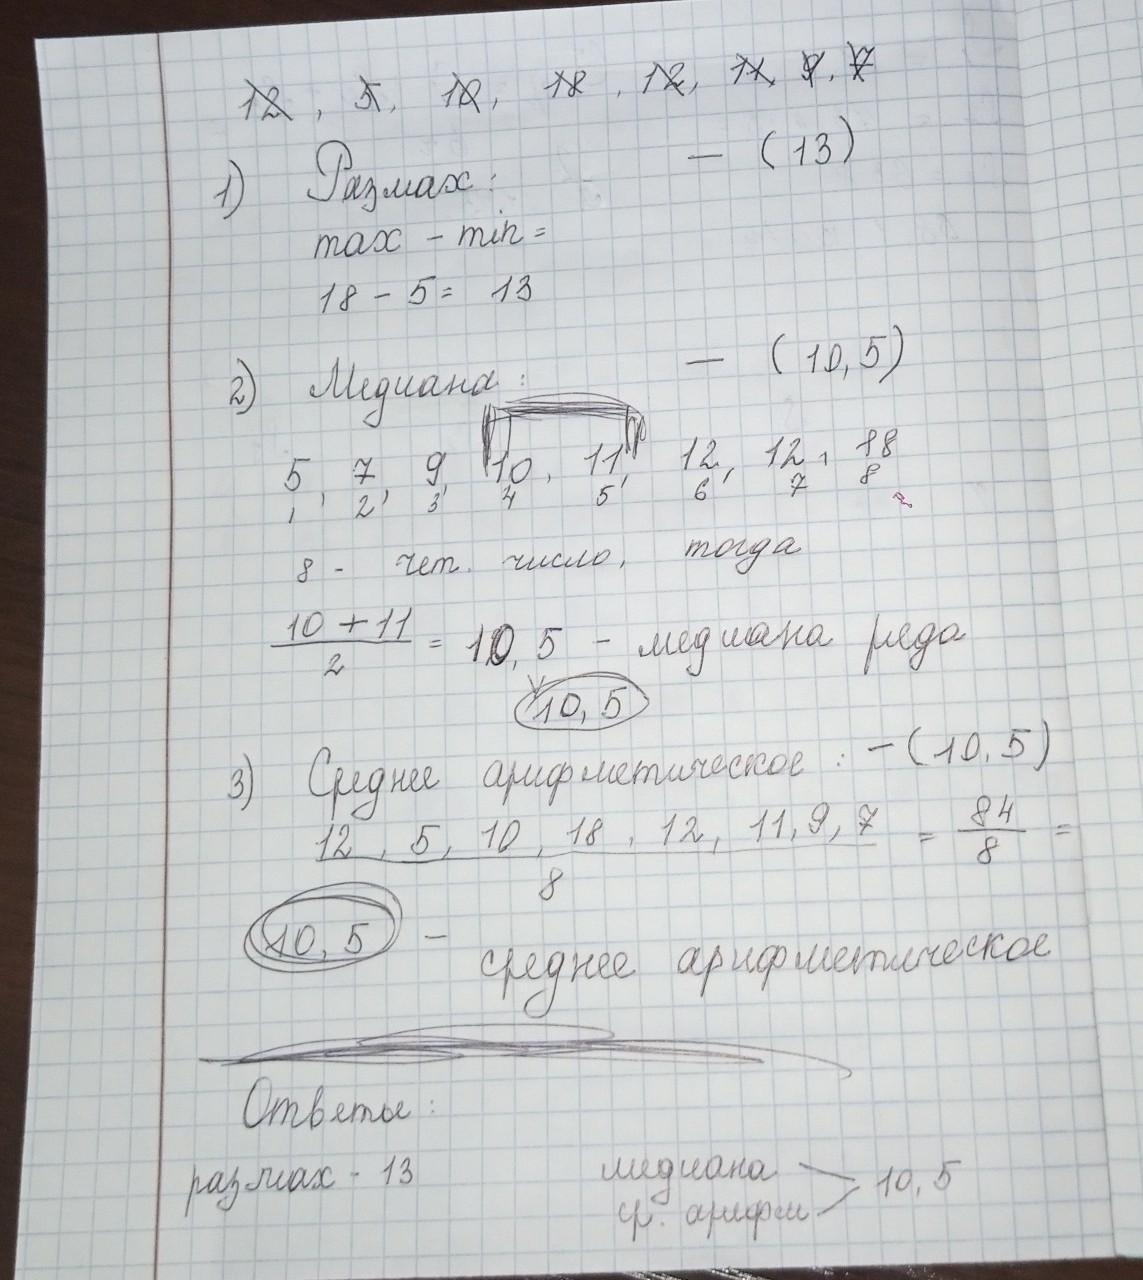 12, 5, 10, 18, 12, 11, 9, 7
1) Размах: — (13)
max - min =
18 - 5 = 13
2) Медиана: — (10,5)
5, 7, 9, 10, 11, 12, 12, 18
1 2 3 4 5 6 7 8
8 - чет. число, тогда
10 + 11
2
= 10,5 - медиана ряда
10,5
3) Среднее арифметическое: - (10,5)
12, 5, 10, 18, 12, 11, 9, 7 = 84 =
8 8
10,5 - среднее арифметическое
Ответы:
размах - 13 медиана 10,5
ср. арифм